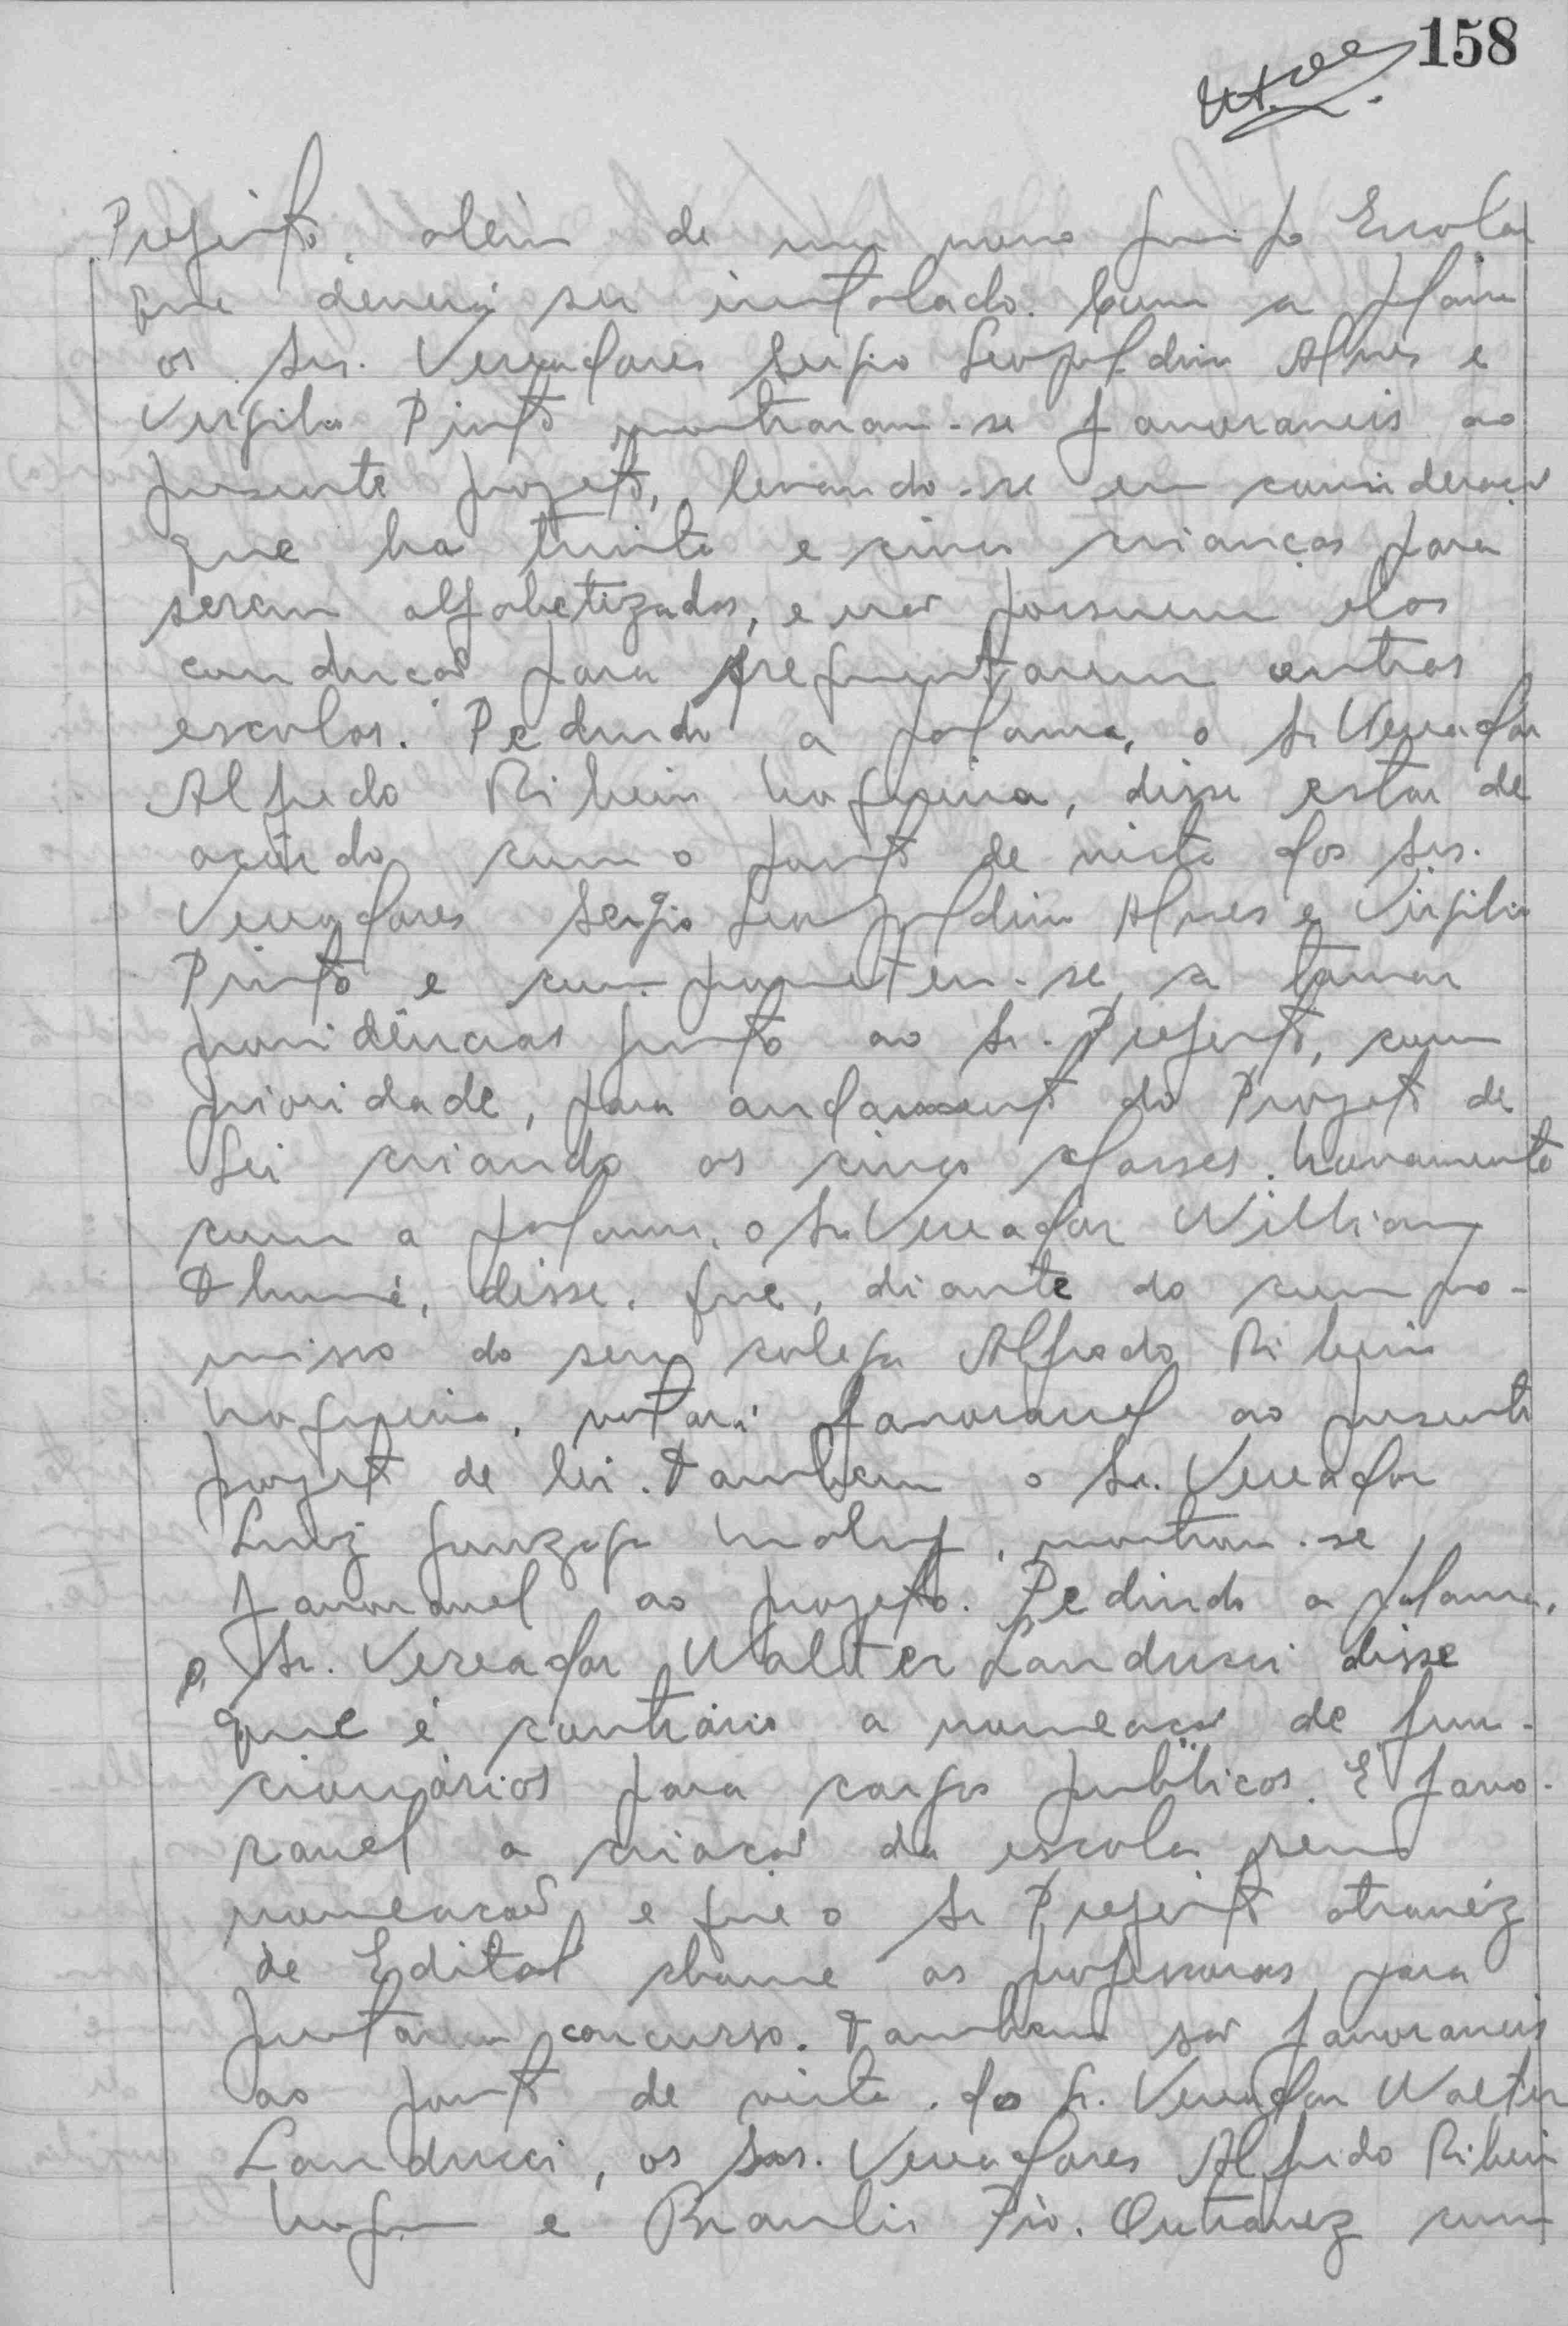 158
Prefeito, além de um novo Grupo Escolar
que deverá ser instalado. Com a palavra
os Srs. Vereadores Sergio Leopoldino Alves e
Virgilio Pinto mostraram-se favoraveis ao
presente projeto, levando-se em consideração
que ha trinta e cinco crianças para
serem alfabetizadas, e não possuem elas
condução para frequentarem outras
escolas. Pedindo a palavra, o Sr Vereador
Alfredo Ribeiro Nogueira, disse estar de
acôrdo com o ponto de vista dos Srs.
Vereadores Sergio Leopoldino Alves e Virgilio
Pinto e comprometeu-se a tomar
providências junto ao Sr. Prefeito, com
prioridade, para andamento do Projeto de
Lei criando as cinco classes. Novamente
com a palavra, o Sr Vereador William
Thomé, disse, que, diante do compro-
misso do seu colega Alfredo Ribeiro
Nogueira, votará favoravel ao presente
projeto de lei. Tambem o Sr. Vereador
Luiz Gonzaga, mostrou-se
favoravel ao projeto. Pedindo a palavra,
o Sr. Vereador Walter Landucci disse
que é contrário a nomeação de fun-
cionários para cargos publicos. É favo-
ravel a criação da escola sem
nomeação, e que o Sr Prefeito atravéz
de Edital chame as professoras para
prestarem concurso. Tambem são favoraveis
ao ponto de vista do Sr. Vereador Walter
Landucci, os Srs. Vereadores Alfredo Ribeiro
Nogueira e Braulio Pio. Outravez com